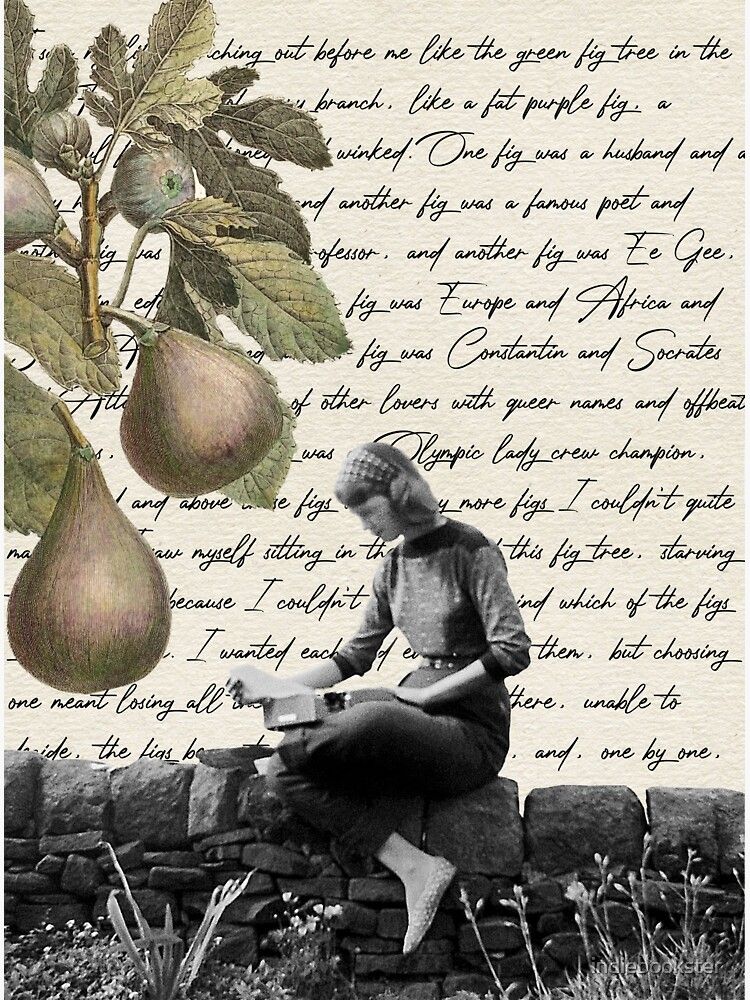 ching out before me like the green fig tree in the
branch, like a fat purple fig, a
winked. One fig was a husband and a
and another fig was a famous poet and
fig was ofessor, and another fig was Ee Gee,
fig was Europe and Africa and
fig was Constantin and Socrates
of other lovers with queer names and offbeat
was Olympic lady crew champion,
and above these figs more figs I couldn't quite
saw myself sitting in this fig tree, starving
because I couldn't which of the figs
I wanted each them, but choosing
one meant losing all there, unable to
the figs and, one by one,
indiebookster